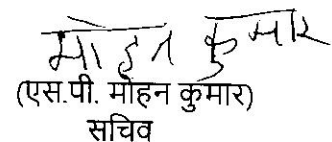 मोहन कुमार
(एस.पी. मोहन कुमार)
सचिव